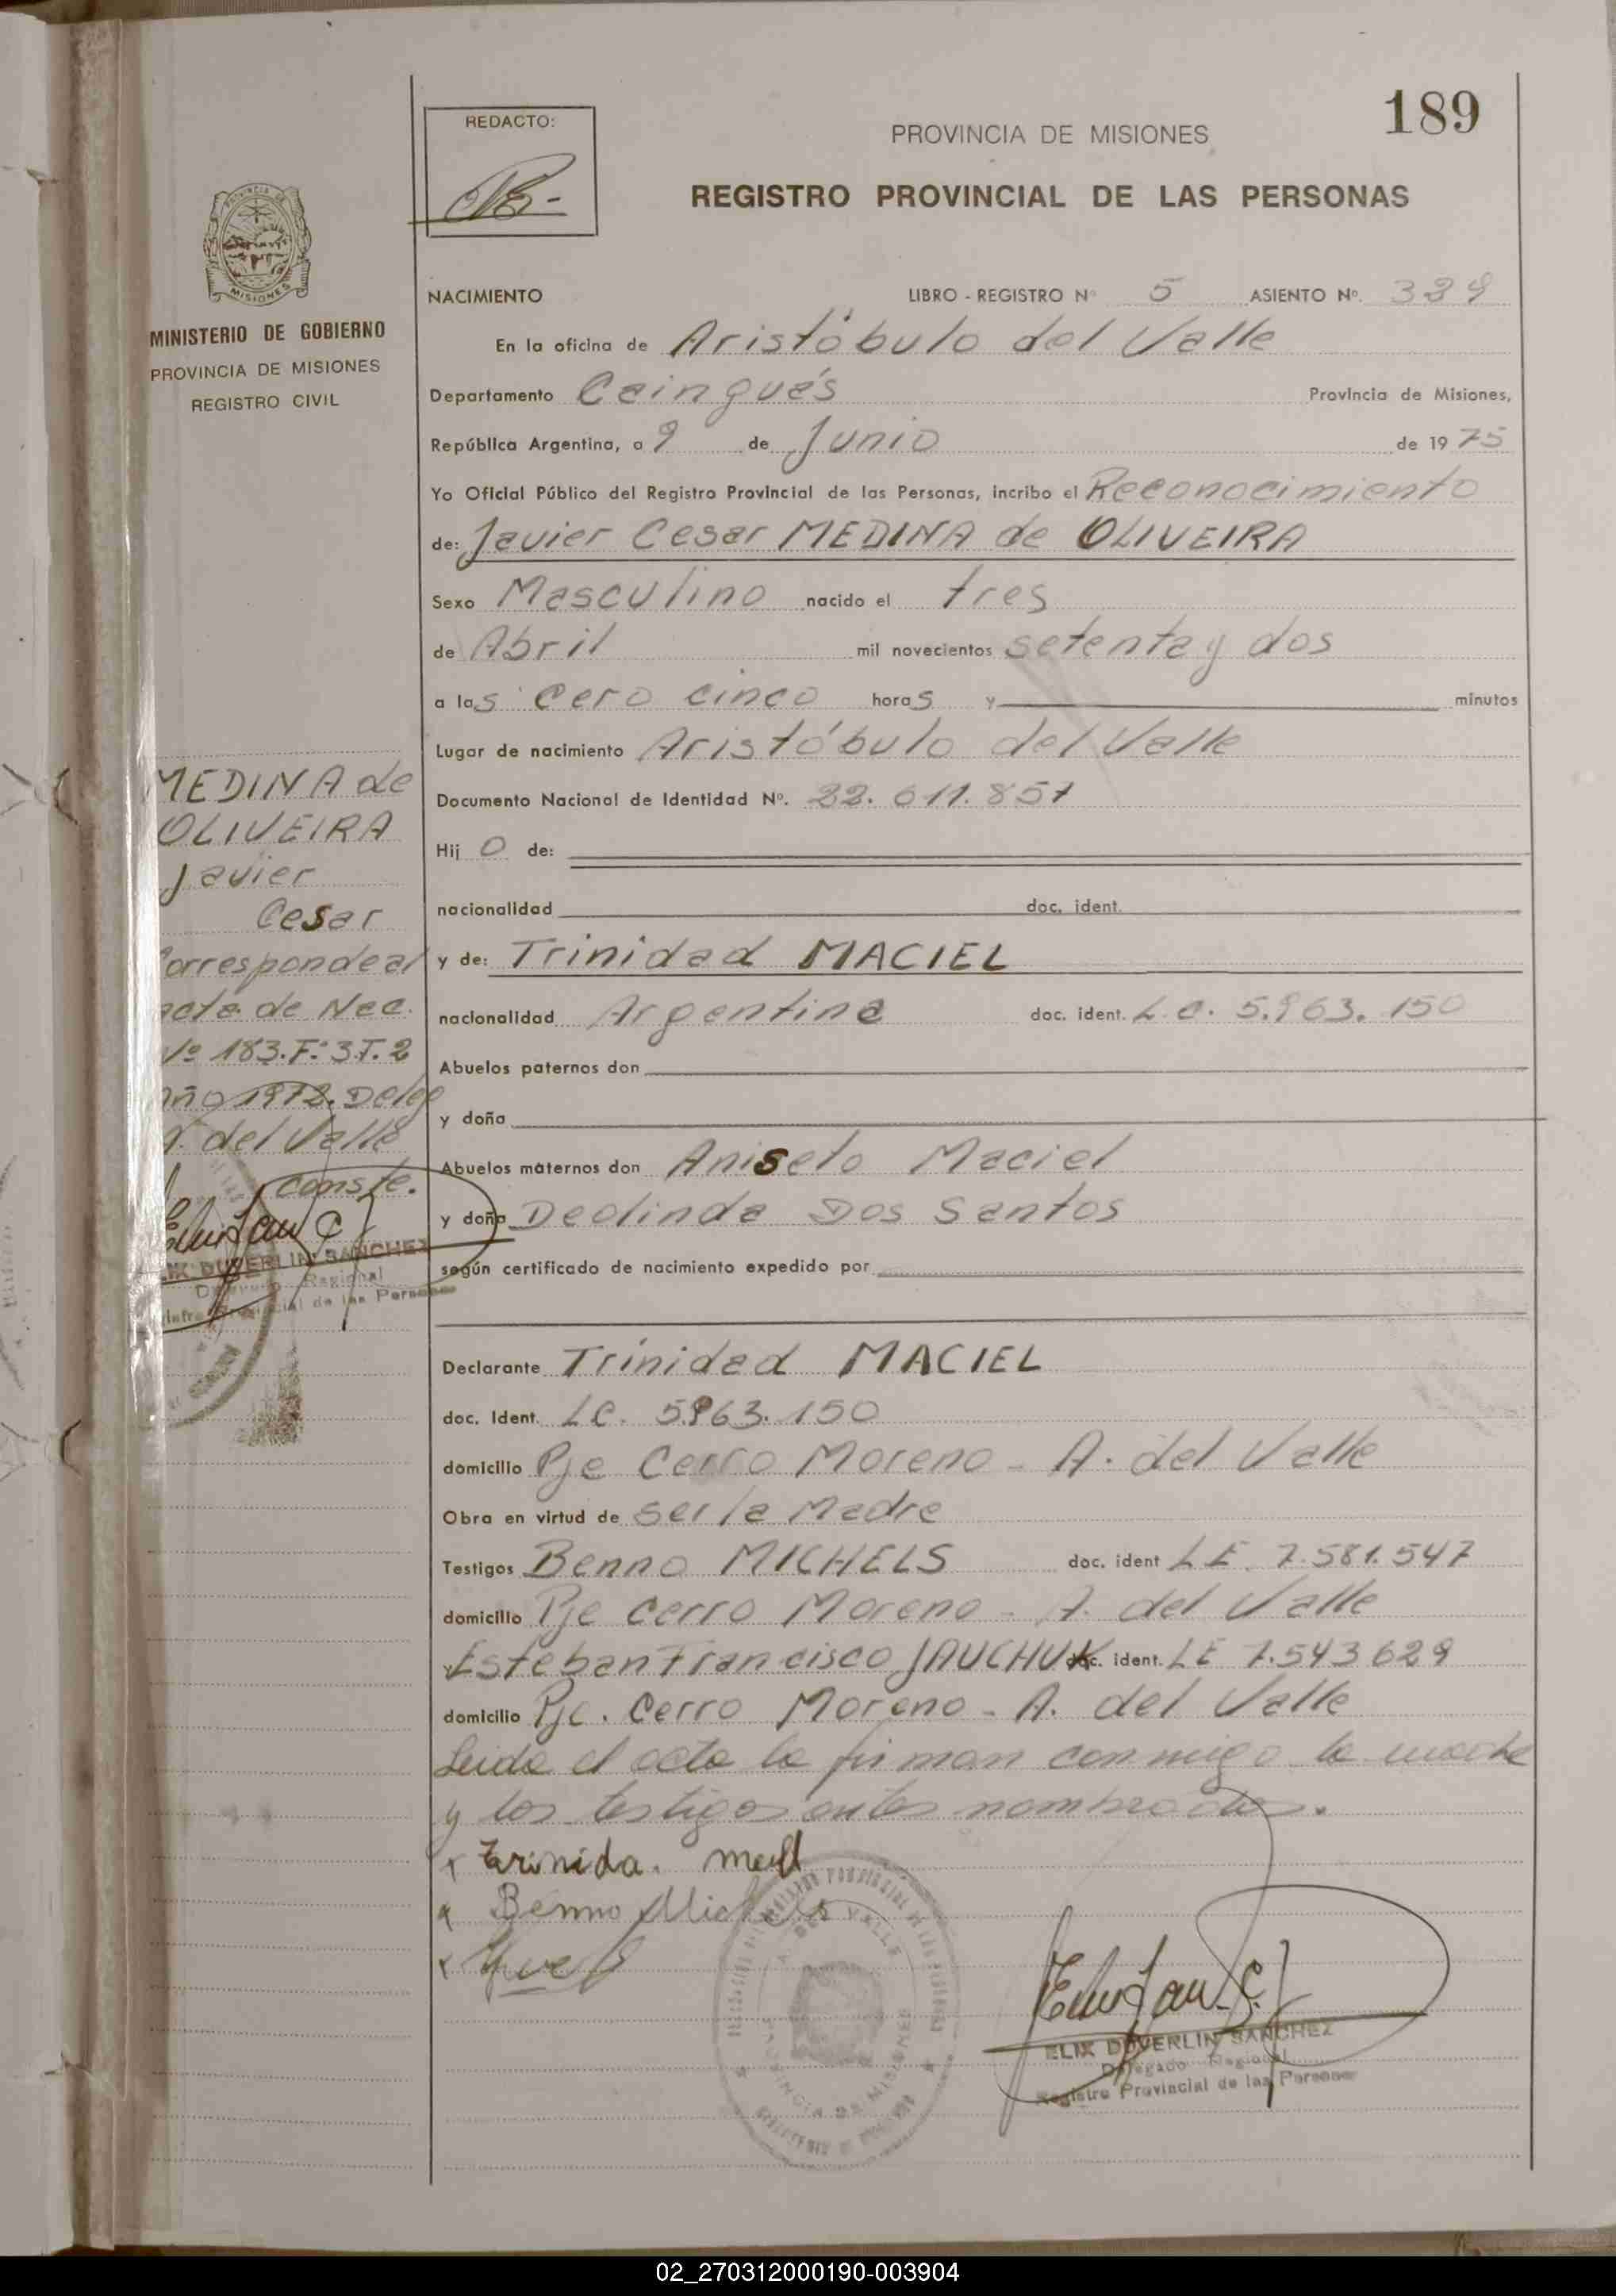 189
REDACTO:
PROVINCIA DE MISIONES
REGISTRO PROVINCIAL DE LAS PERSONAS
MISIONES
MINISTERIO DE GOBIERNO
PROVINCIA DE MISIONES
REGISTRO CIVIL
NACIMIENTO LIBRO - REGISTRO Nº 5 ASIENTO Nº. 389
En la oficina de Aristóbulo del Valle
Departamento Caingués Provincia de Misiones,
República Argentina, a 9 de Junio de 1975
Yo Oficial Público del Registro Provincial de las Personas, incribo el Reconocimiento
de: Javier Cesar MEDINA de OLIVEIRA
Sexo Masculino nacido el tres
de Abril mil novecientos setenta y dos
a las cero cinco horas y minutos
Lugar de nacimiento Aristóbulo del Valle
Documento Nacional de Identidad Nº. 22.611.857
Hijo de:
nacionalidad doc. ident.
y de: Trinidad MACIEL
nacionalidad Argentina doc. ident. L.C. 5.963.150
Abuelos paternos don
y doña
Abuelos maternos don Aniseto Maciel
y doña Deolinda Dos Santos
según certificado de nacimiento expedido por
Declarante Trinidad MACIEL
doc. Ident. LC. 5963.150
domicilio Pje Cerro Moreno - A. del Valle
Obra en virtud de ser la Madre
Testigos Benno MICHELS doc. ident LE. 7.581.547
domicilio Pje Cerro Moreno - A. del Valle
y Esteban Francisco JAUCHUK doc. ident. LE 7.543629
domicilio Pje. Cerro Moreno - A. del Valle
Leida el acta la firman conmigo la madre
y los testigos antes nombrados.
x Trinida.
x Benno Michels
x
ELIX DUVERLIN SANCHEZ
Delegado Regional
Registro Provincial de las Personas
MEDINA de
OLIVEIRA
Javier
Cesar
Corresponde al
acta de Nac.
Nº 183.F:3T.2
Año 1972. Deleg
A. del Valle
Conste.
ELIX DUVERLIN SANCHEZ
Delegado Regional
Registro Provincial de las Personas
A. DEL VALLE
PROVINCIA DE MISIONES
02_270312000190-003904